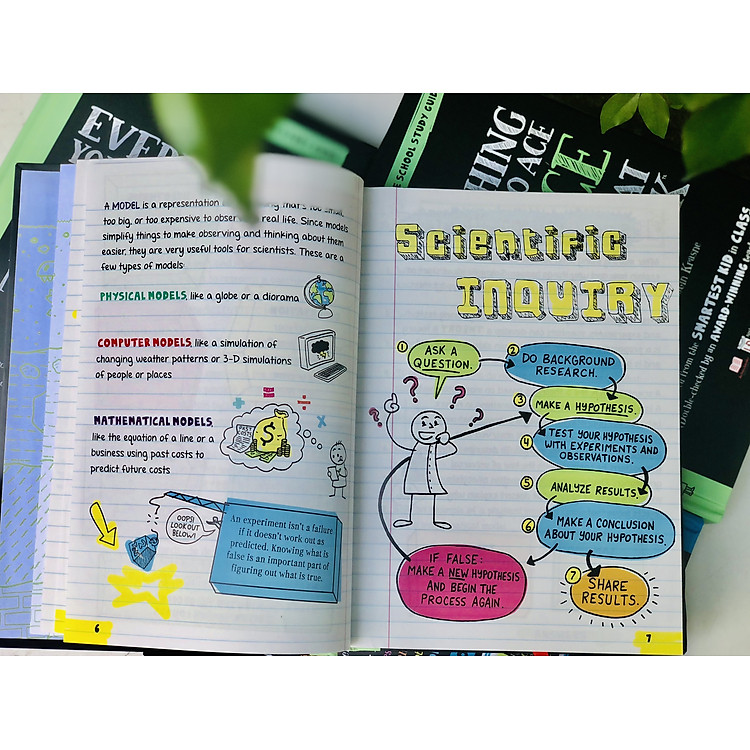 A MODEL is a representation
that's too small,
too big, or too expensive to observe real life. Since models
simplify things to make observing and thinking about them
easier, they are very useful tools for scientists. These are a
few types of models:
PHYSICAL MODELS, like a globe or a diorama
COMPUTER MODELS, like a simulation of
changing weather patterns or 3-D simulations
of people or places
MATHEMATICAL MODELS,
like the equation of a line or a
business using past costs to
predict future costs
PAST
COSTS
$
OOPS!
LOOK OUT
BELOW!
An experiment isn't a failure
if it doesn't work out as
predicted. Knowing what is
false is an important part of
figuring out what is true.
6
Scientific
INQUIRY
1 ASK A
QUESTION.
2 DO BACKGROUND
RESEARCH.
3 MAKE A HYPOTHESIS.
4 TEST YOUR HYPOTHESIS
WITH EXPERIMENTS AND
OBSERVATIONS.
5 ANALYZE RESULTS.
6 MAKE A CONCLUSION
ABOUT YOUR HYPOTHESIS.
IF FALSE:
MAKE A NEW HYPOTHESIS
AND BEGIN THE
PROCESS AGAIN.
7 SHARE
RESULTS.
? ? ? ?
7
EVE
YO
SCHOOL STUDY GUID
HING
O ACE
CE
AT
Krasne
from the SMARTEST KID in CLASS
ble-checked by an AWARD-WINNING